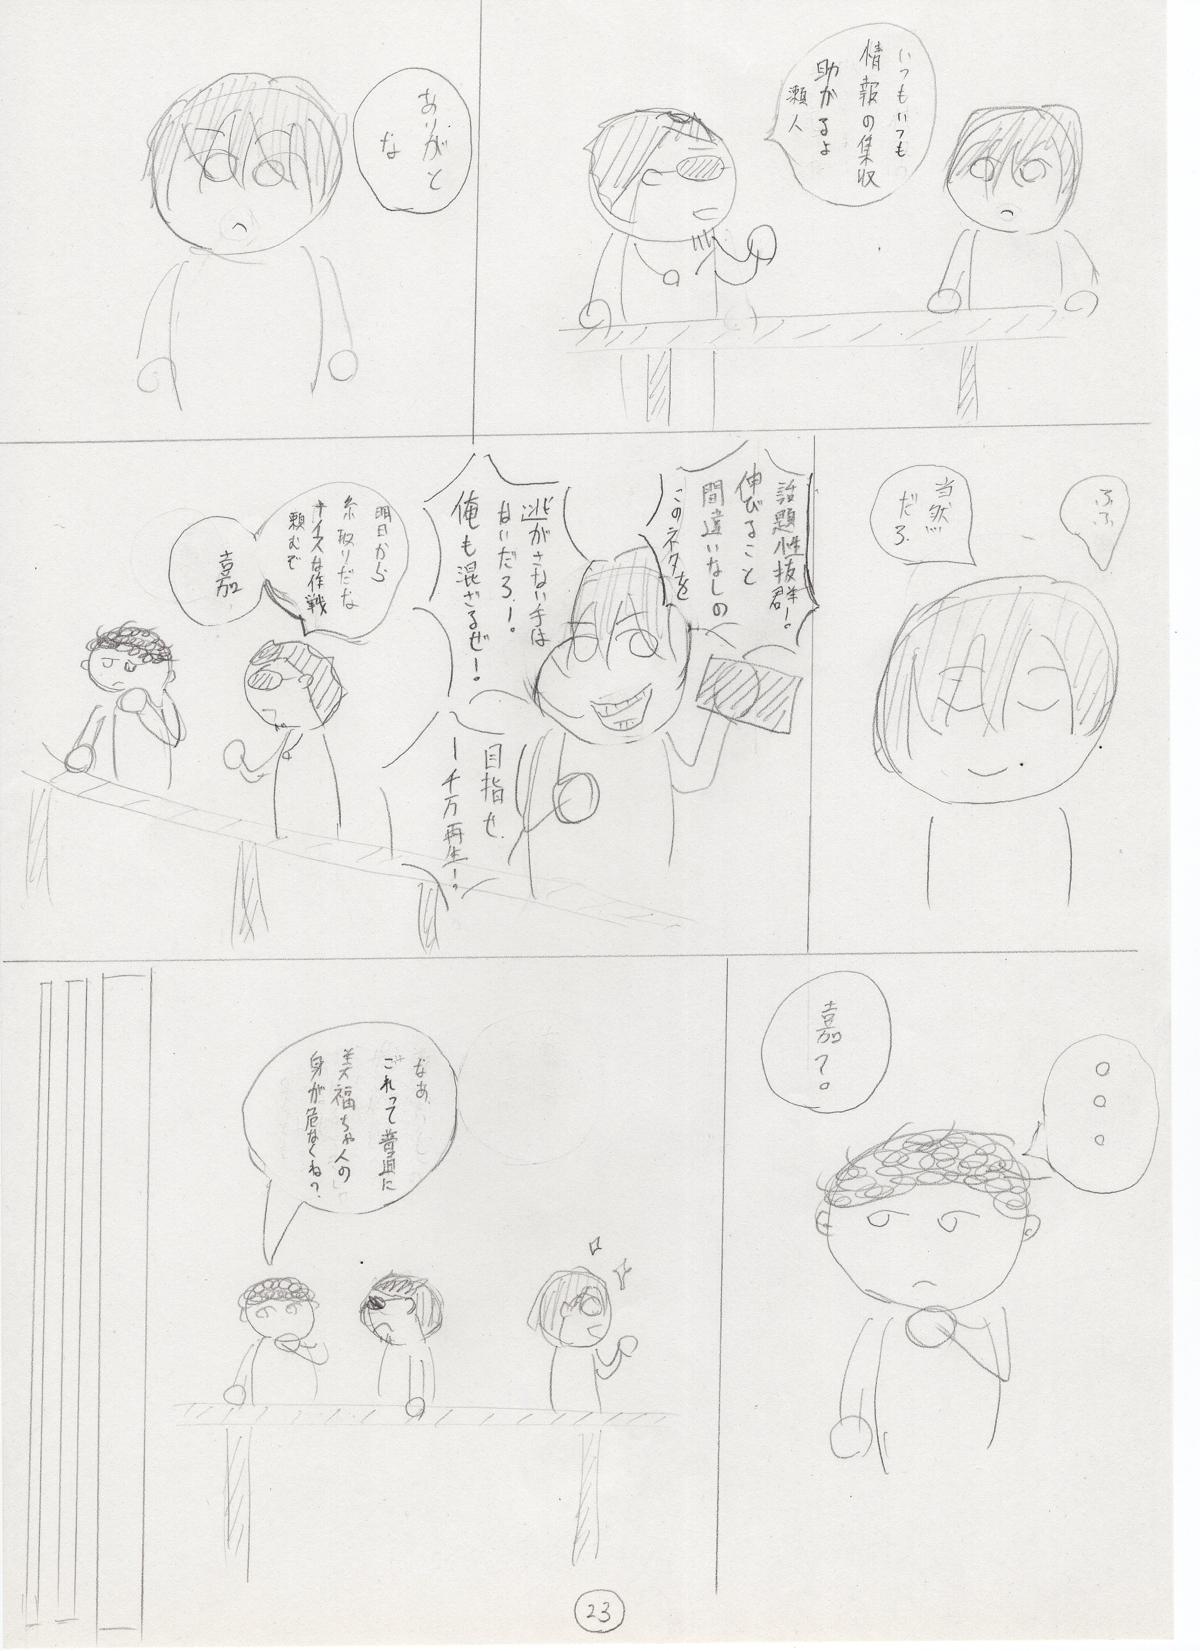 いつもいつも
情報の集収
助かるよ
瀬人
ありがと
な
ふふ
当然
だろ
話題性抜群!。
伸びること
間違いなしの
このネタを
逃がさない手は
ないだろ!。
俺も混ざるぜ!。
目指せ
一千万再生!。
明日から
糸取りだな
ナイスな作戦
頼むで
嘉
。。。
嘉?。
なあ
これって普通に
美福ちゃんの
身が危なくね?
23